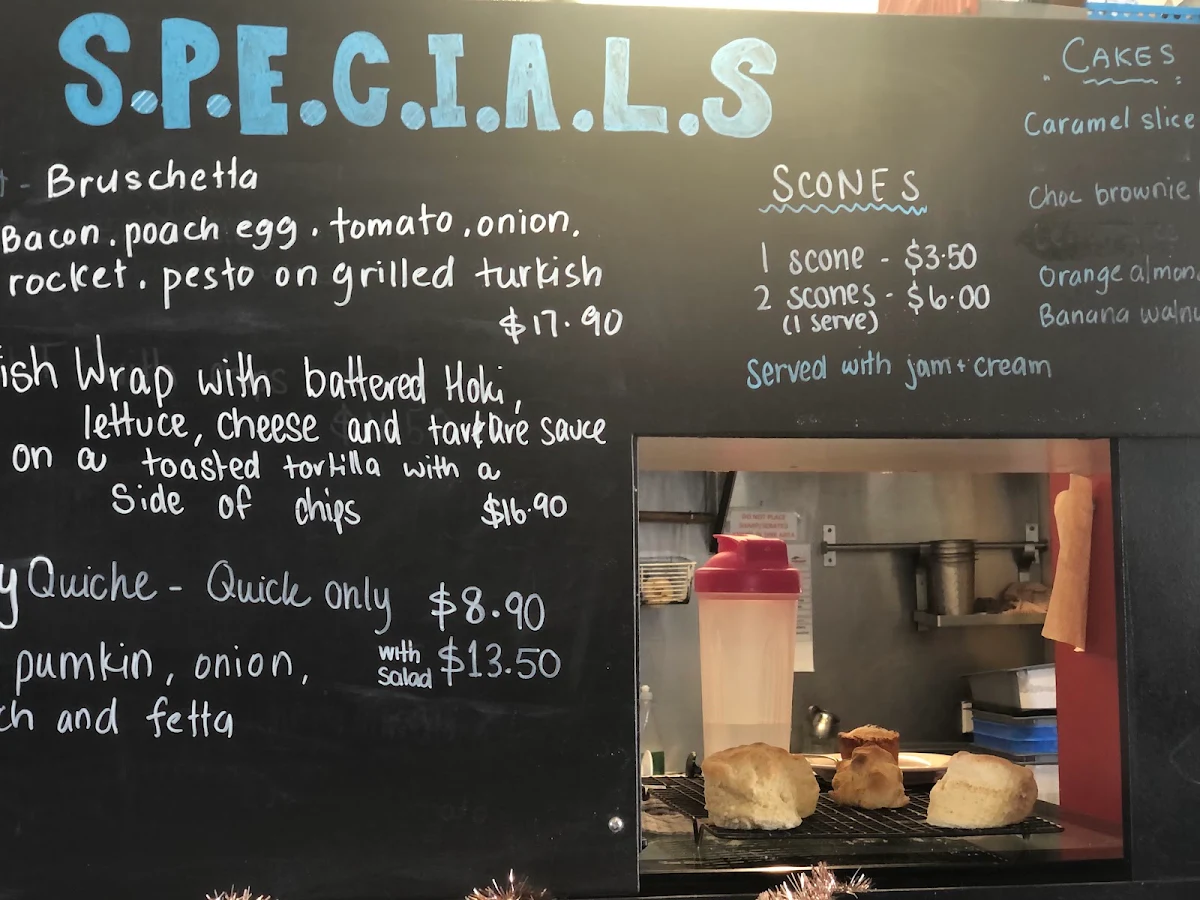 S.P.E.C.I.A.L.S
- Bruschetta
Bacon. poach egg. tomato, onion,
rocket. pesto on grilled turkish
$17.90
ish Wrap with battered Hoki,
lettuce, cheese and tartare sauce
on a toasted tortilla with a
Side of chips $16.90
y Quiche - Quick only $8.90
pumkin, onion, with salad $13.50
ch and fetta
SCONES
1 scone - $3.50
2 scones - $6.00
(1 serve)
Served with jam + cream
CAKES
Caramel slice
Choc brownie
Orange almon
Banana walnu